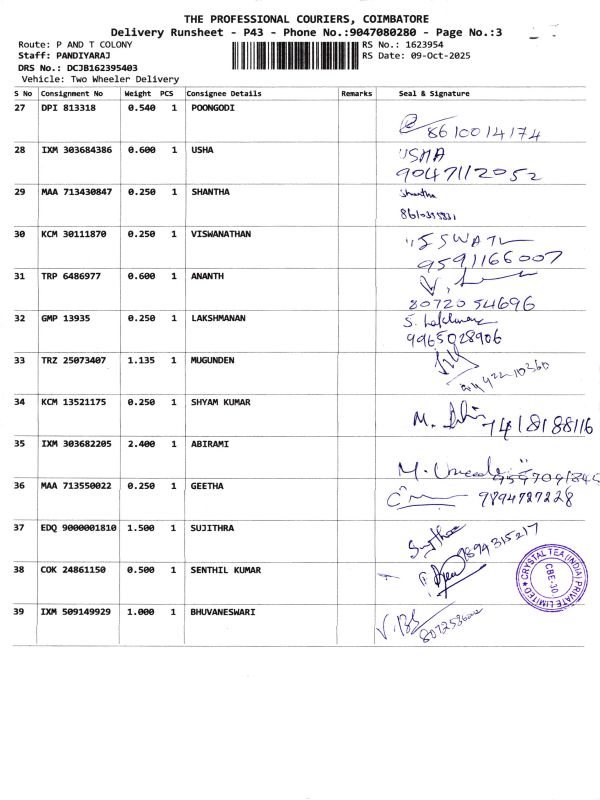 THE PROFESSIONAL COURIERS, COIMBATORE
Delivery Runsheet - P43 - Phone No.:9047080280 - Page No.:3
Route: P AND T COLONY
RS No.: 1623954
Staff: PANDIYARAJ
RS Date: 09-Oct-2025
DRS No.: DCJB162395403
Vehicle: Two Wheeler Delivery
S No Consignment No Weight PCS Consignee Details Remarks Seal & Signature
27 DPI 813318 0.540 1 POONGODI
8610014174
28 IXM 303684386 0.600 1 USHA USHA
9047112052
29 MAA 713430847 0.250 1 SHANTHA Shantha
30 KCM 30111870 0.250 1 VISWANATHAN
9591166007
31 TRP 6486977 0.600 1 ANANTH
8072054696
32 GMP 13935 0.250 1 LAKSHMANAN
9965028906
33 TRZ 25073407 1.135 1 MUGUNDEN
34 KCM 13521175 0.250 1 SHYAM KUMAR
7418188116
35 IXM 303682205 2.400 1 ABIRAMI
36 MAA 713550022 0.250 1 GEETHA
9894727228
37 EDQ 9000001810 1.500 1 SUJITHRA
9894315217
38 COK 24861150 0.500 1 SENTHIL KUMAR
CRYSTAL TEA (INDIA) PRIVATE LIMITED
CBE-30
39 IXM 509149929 1.000 1 BHUVANESWARI